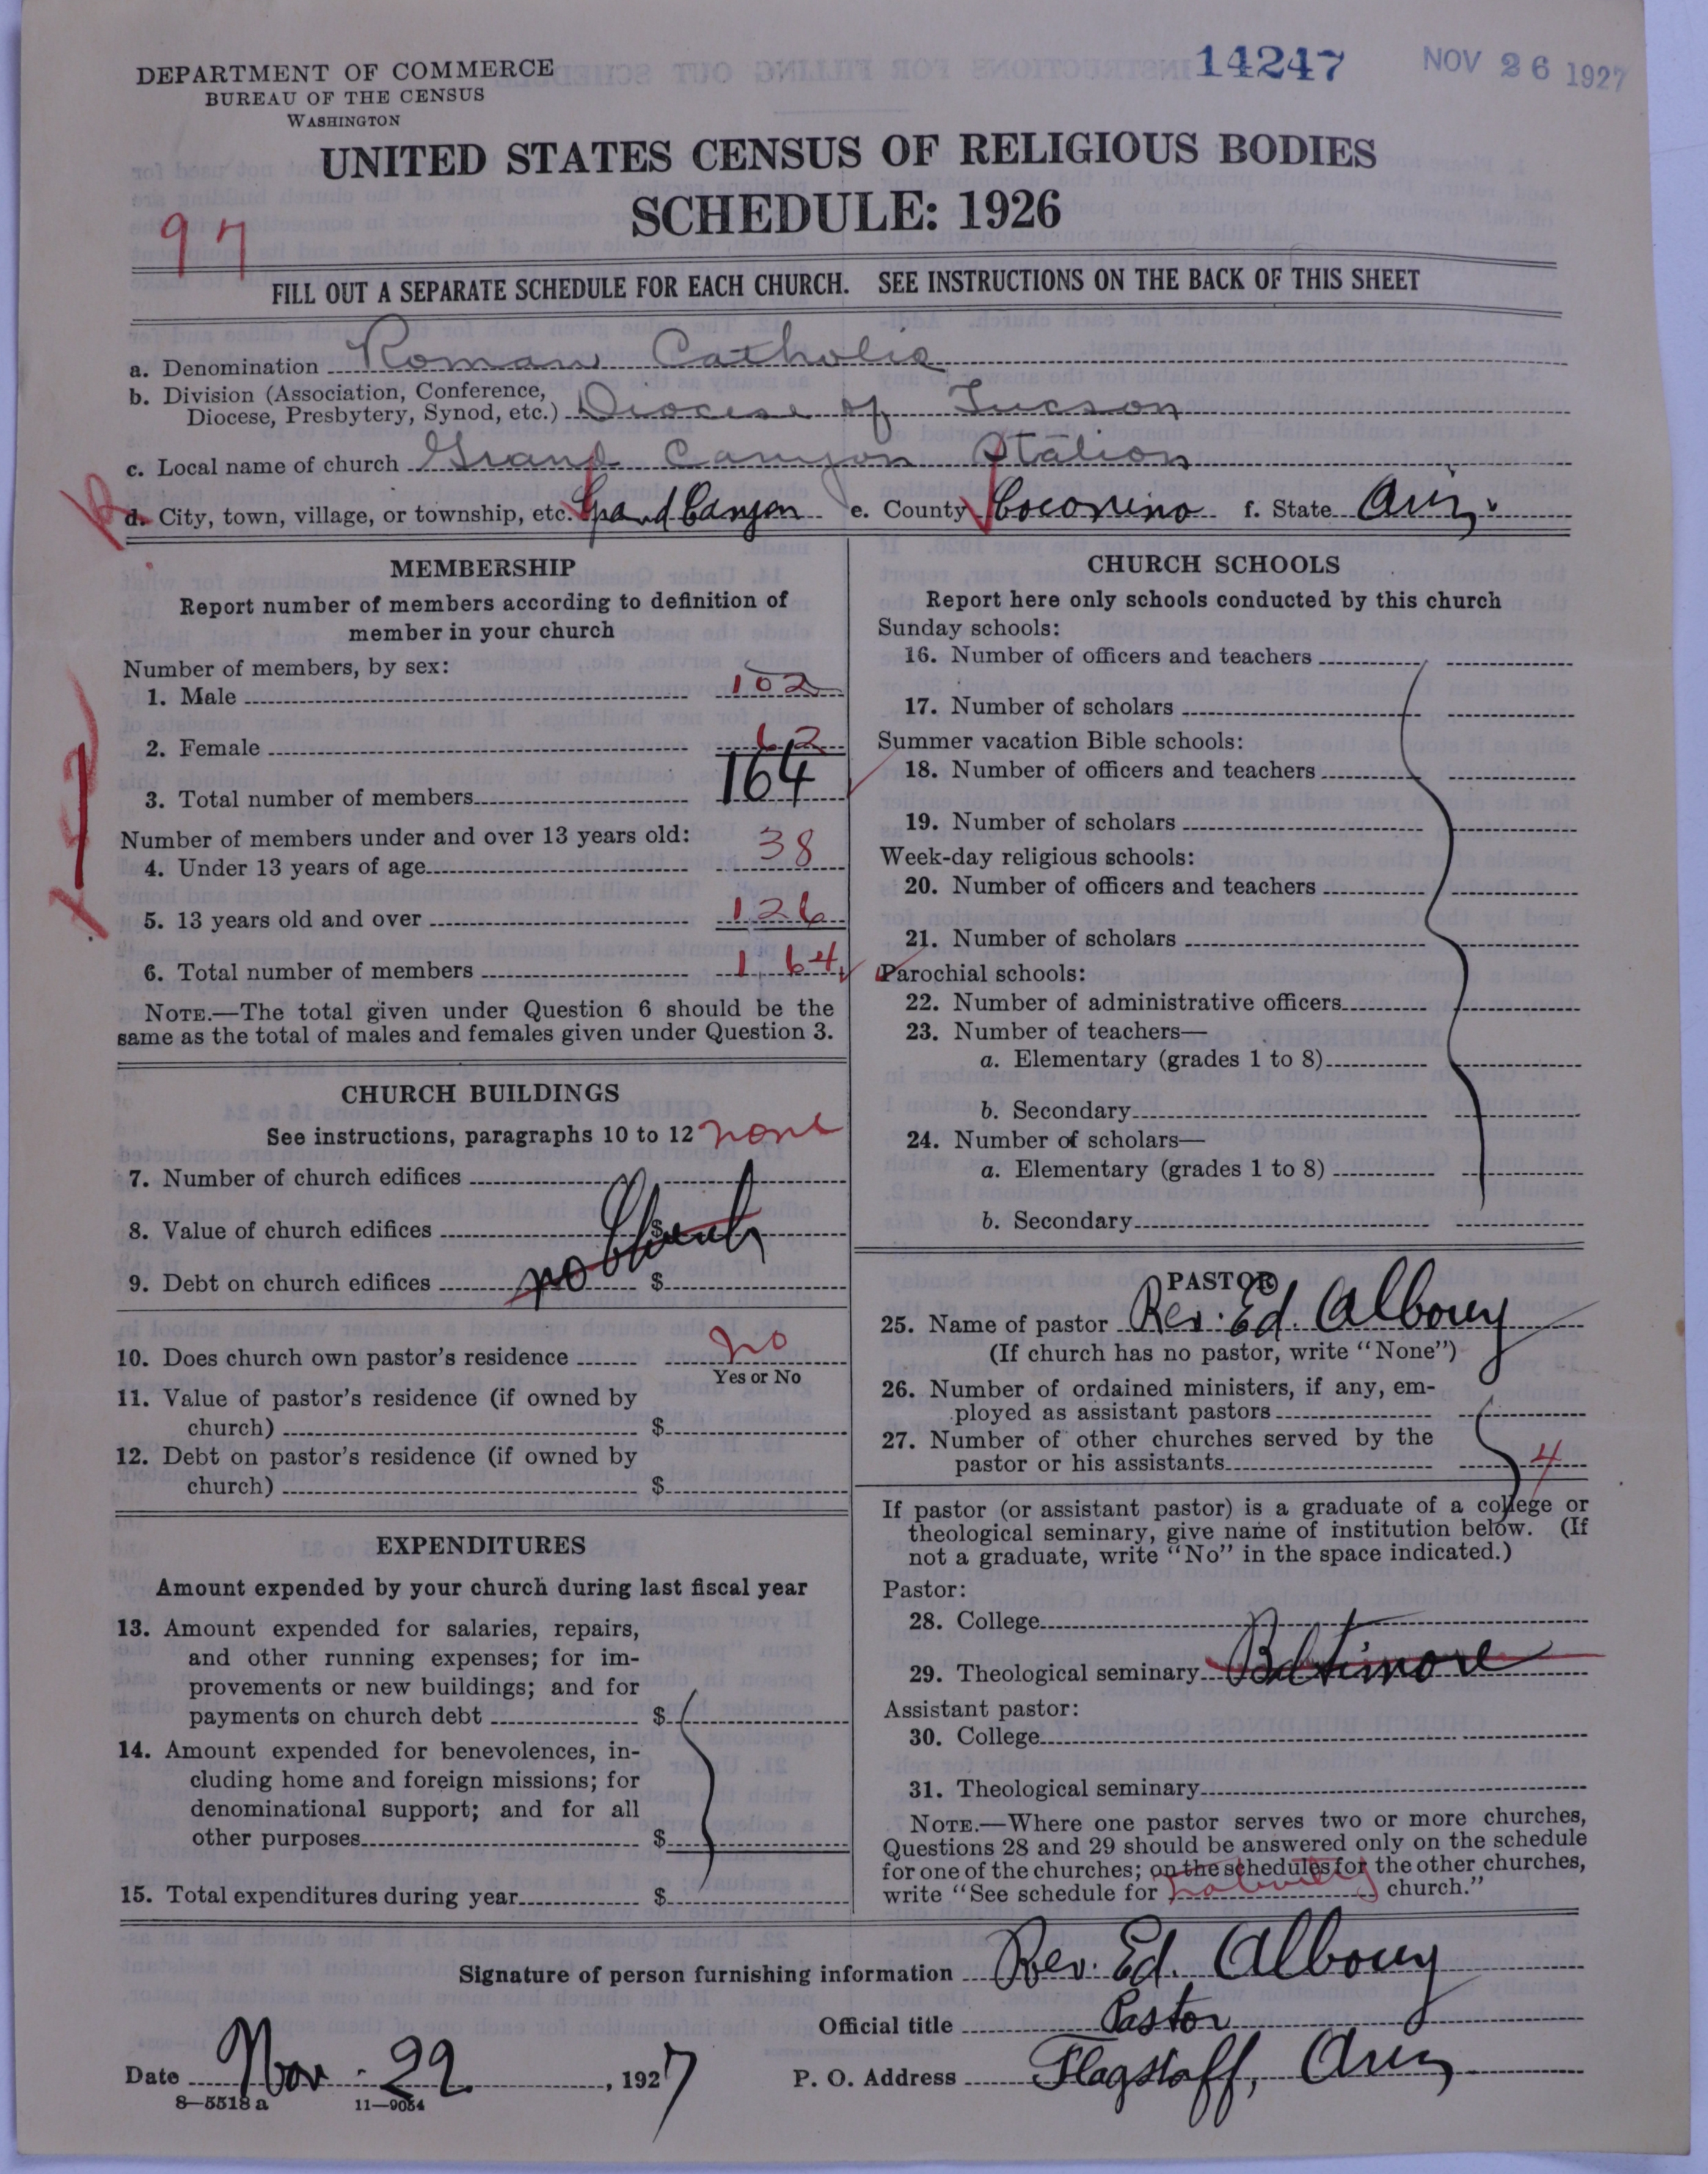 DEPARTMENT OF COMMERCE
BUREAU OF THE CENSUS
WASHINGTON
14247
NOV 26 1927
UNITED STATES CENSUS OF RELIGIOUS BODIES
SCHEDULE: 1926
97
FILL OUT A SEPARATE SCHEDULE FOR EACH CHURCH. SEE INSTRUCTIONS ON THE BACK OF THIS SHEET
a. Denomination Roman Catholic
b. Division (Association, Conference,
Diocese, Presbytery, Synod, etc.) Diocese of Tucson
c. Local name of church Grand Canyon Station
d. City, town, village, or township, etc. Grand Canyon e. County Coconino f. State Ariz.
MEMBERSHIP
Report number of members according to definition of
member in your church
Number of members, by sex:
1. Male 102
2. Female 62
3. Total number of members 164
Number of members under and over 13 years old:
4. Under 13 years of age 38
5. 13 years old and over 126
6. Total number of members 164
NOTE.—The total given under Question 6 should be the
same as the total of males and females given under Question 3.
CHURCH BUILDINGS
See instructions, paragraphs 10 to 12 none
7. Number of church edifices
8. Value of church edifices $
9. Debt on church edifices no Church $
10. Does church own pastor's residence no
Yes or No
11. Value of pastor's residence (if owned by
church) $
12. Debt on pastor's residence (if owned by
church) $
EXPENDITURES
Amount expended by your church during last fiscal year
13. Amount expended for salaries, repairs,
and other running expenses; for im-
provements or new buildings; and for
payments on church debt $
14. Amount expended for benevolences, in-
cluding home and foreign missions; for
denominational support; and for all
other purposes $
15. Total expenditures during year $
CHURCH SCHOOLS
Report here only schools conducted by this church
Sunday schools:
16. Number of officers and teachers
17. Number of scholars
Summer vacation Bible schools:
18. Number of officers and teachers
19. Number of scholars
Week-day religious schools:
20. Number of officers and teachers
21. Number of scholars
Parochial schools:
22. Number of administrative officers
23. Number of teachers—
a. Elementary (grades 1 to 8)
b. Secondary
24. Number of scholars—
a. Elementary (grades 1 to 8)
b. Secondary
PASTOR
25. Name of pastor Rev. Ed. Albouy
(If church has no pastor, write "None")
26. Number of ordained ministers, if any, em-
ployed as assistant pastors
27. Number of other churches served by the
pastor or his assistants 4
If pastor (or assistant pastor) is a graduate of a college or
theological seminary, give name of institution below. (If
not a graduate, write "No" in the space indicated.)
Pastor:
28. College
29. Theological seminary Baltimore
Assistant pastor:
30. College
31. Theological seminary
NOTE.—Where one pastor serves two or more churches,
Questions 28 and 29 should be answered only on the schedule
for one of the churches; on the schedules for the other churches,
write "See schedule for Nativity church."
Signature of person furnishing information Rev. Ed. Albouy
Official title Pastor
Date Nov. 22, 1927 P. O. Address Flagstaff, Ariz
8—5518a 11—9054